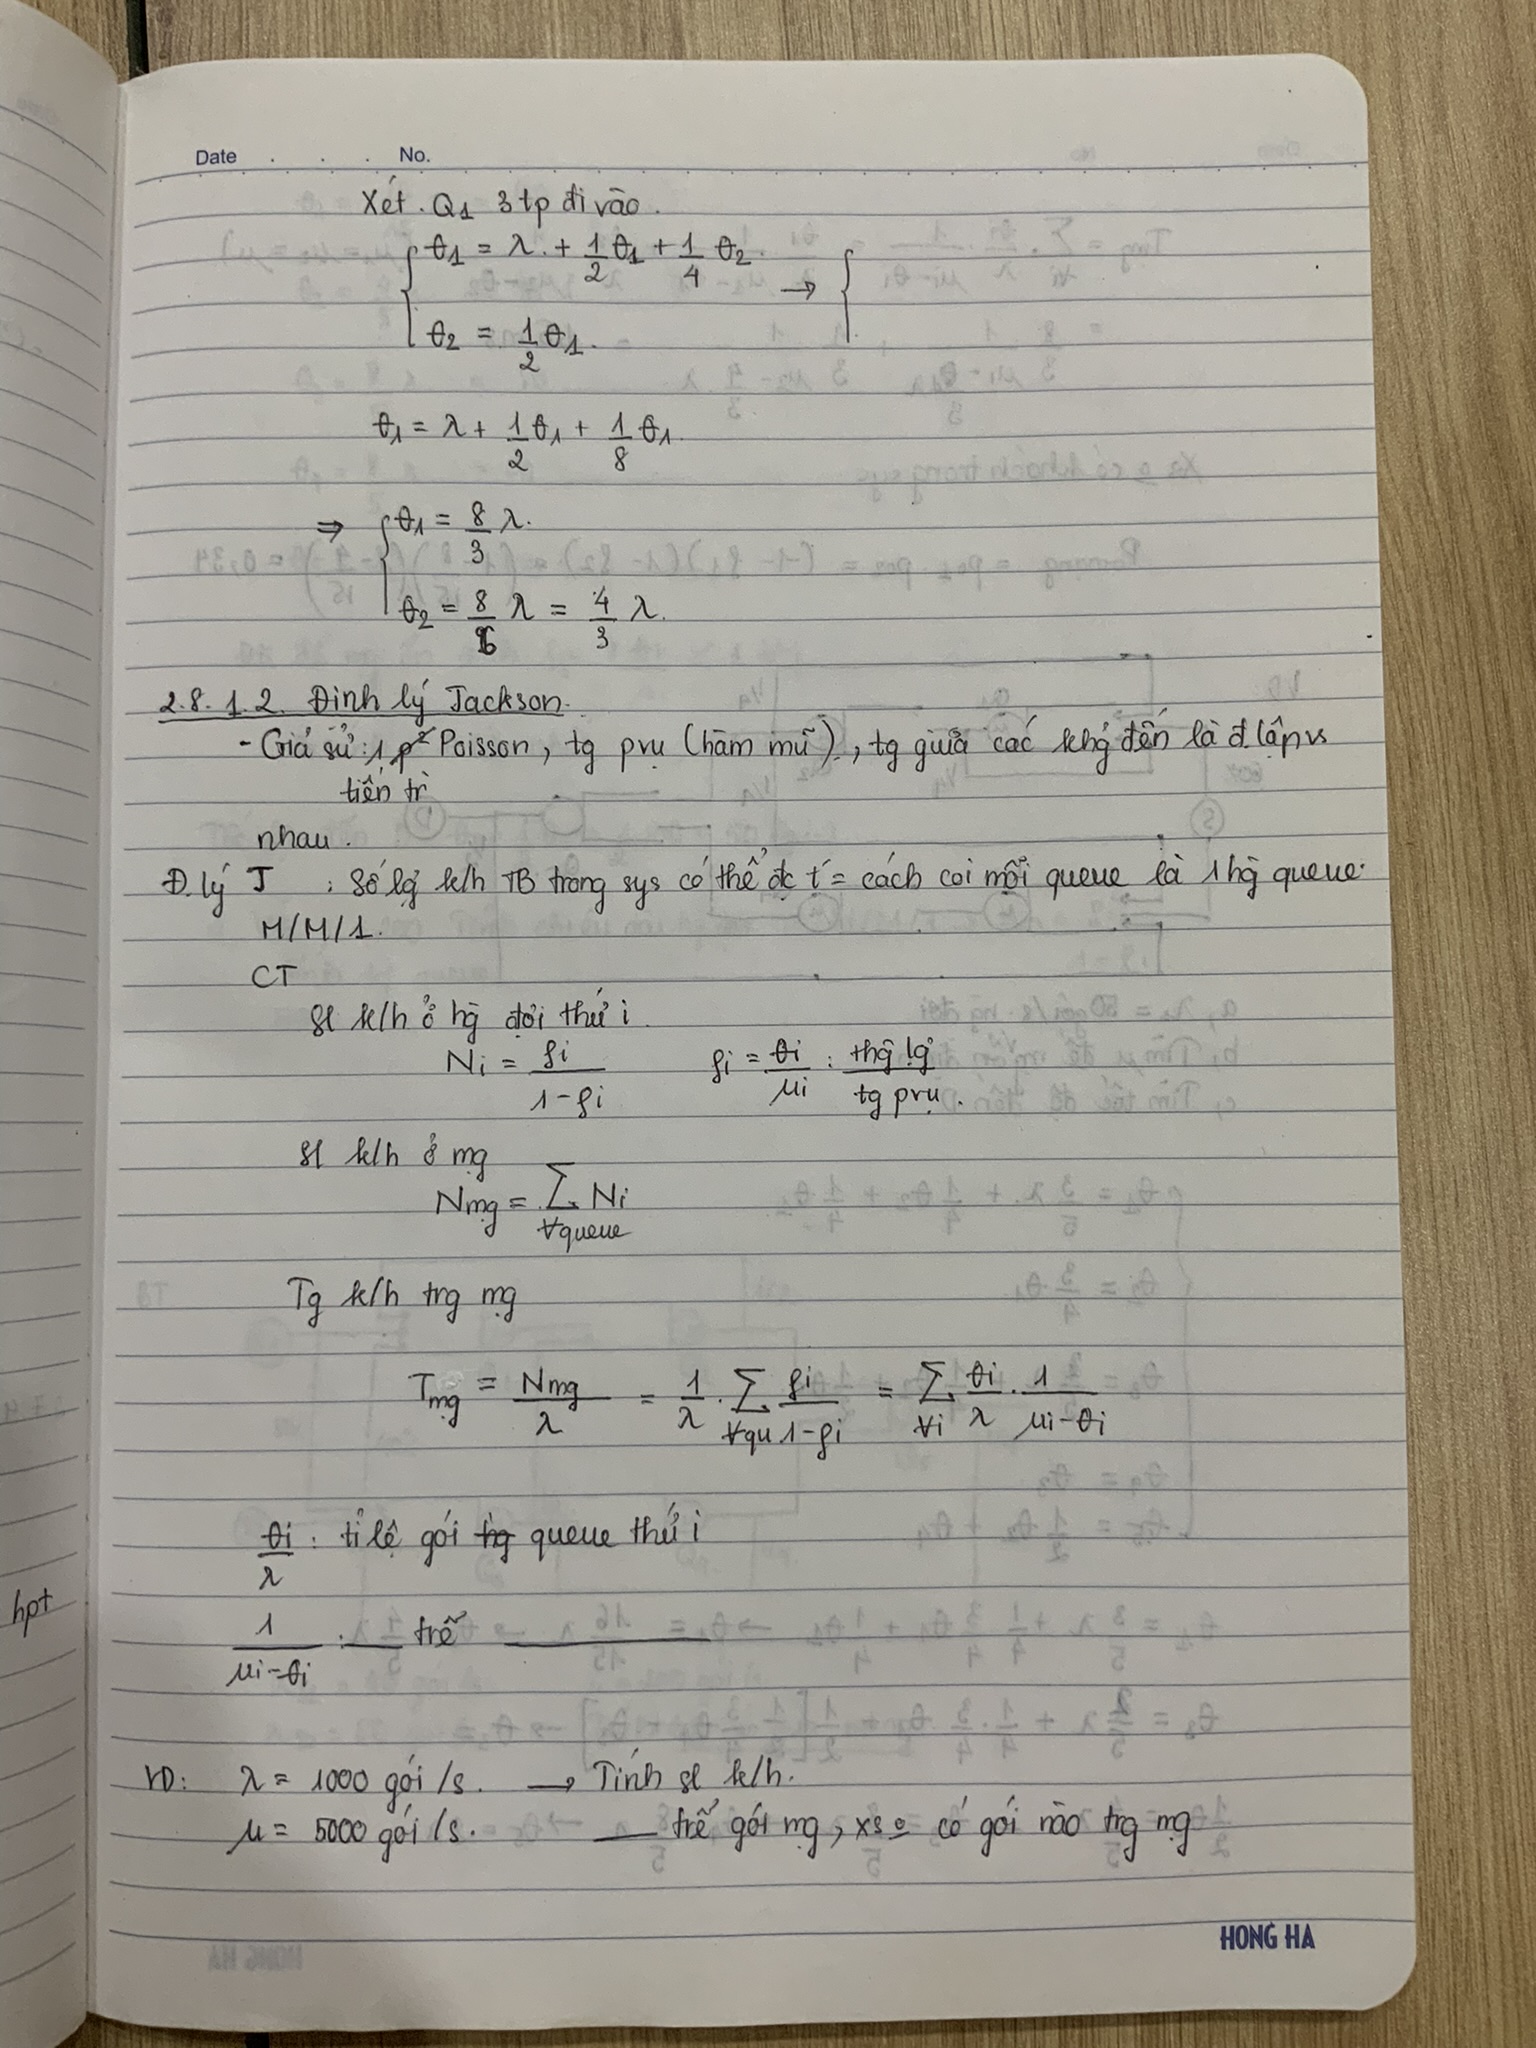 Date . . . No.
Xét Q1 3 tp đi vào.
θ1 = λ + 1/2 θ1 + 1/4 θ2 → {
θ2 = 1/2 θ1.
θ1 = λ + 1/2 θ1 + 1/8 θ1.
⇒ { θ1 = 8/3 λ.
θ2 = 8/6 λ = 4/3 λ.
2.8.1.2. Định lý Jackson.
- Giả sử: 1 Poisson, tg pvụ (hàm mũ), tg giữa các khg đến là đ.lập vs
tiến tr
nhau.
Đ.lý J : Số lg k/h TB trong sys có thể đc t' = cách coi mỗi queue là 1 hg queue
M/M/1.
CT
Sl k/h ở hg đợi thứ i
Ni = ρi/(1-ρi) ρi = θi/μi : thg lg/tg pvụ.
Sl k/h ở mg
Nmg = Σ Ni
∀queue
Tg k/h trg mg
Tmg = Nmg/λ = 1/λ . Σ ∀qu ρi/(1-ρi) = Σ ∀i θi/λ . 1/(μi-θi)
θi/λ : tỉ lệ gói trg queue thứ i
1/(μi-θi) : — trễ ———
VD: λ = 1000 gói/s. → Tính sl k/h.
μ = 5000 gói/s. — trễ gói mg, xs o có gói nào trg mg
hpt
HONG HA